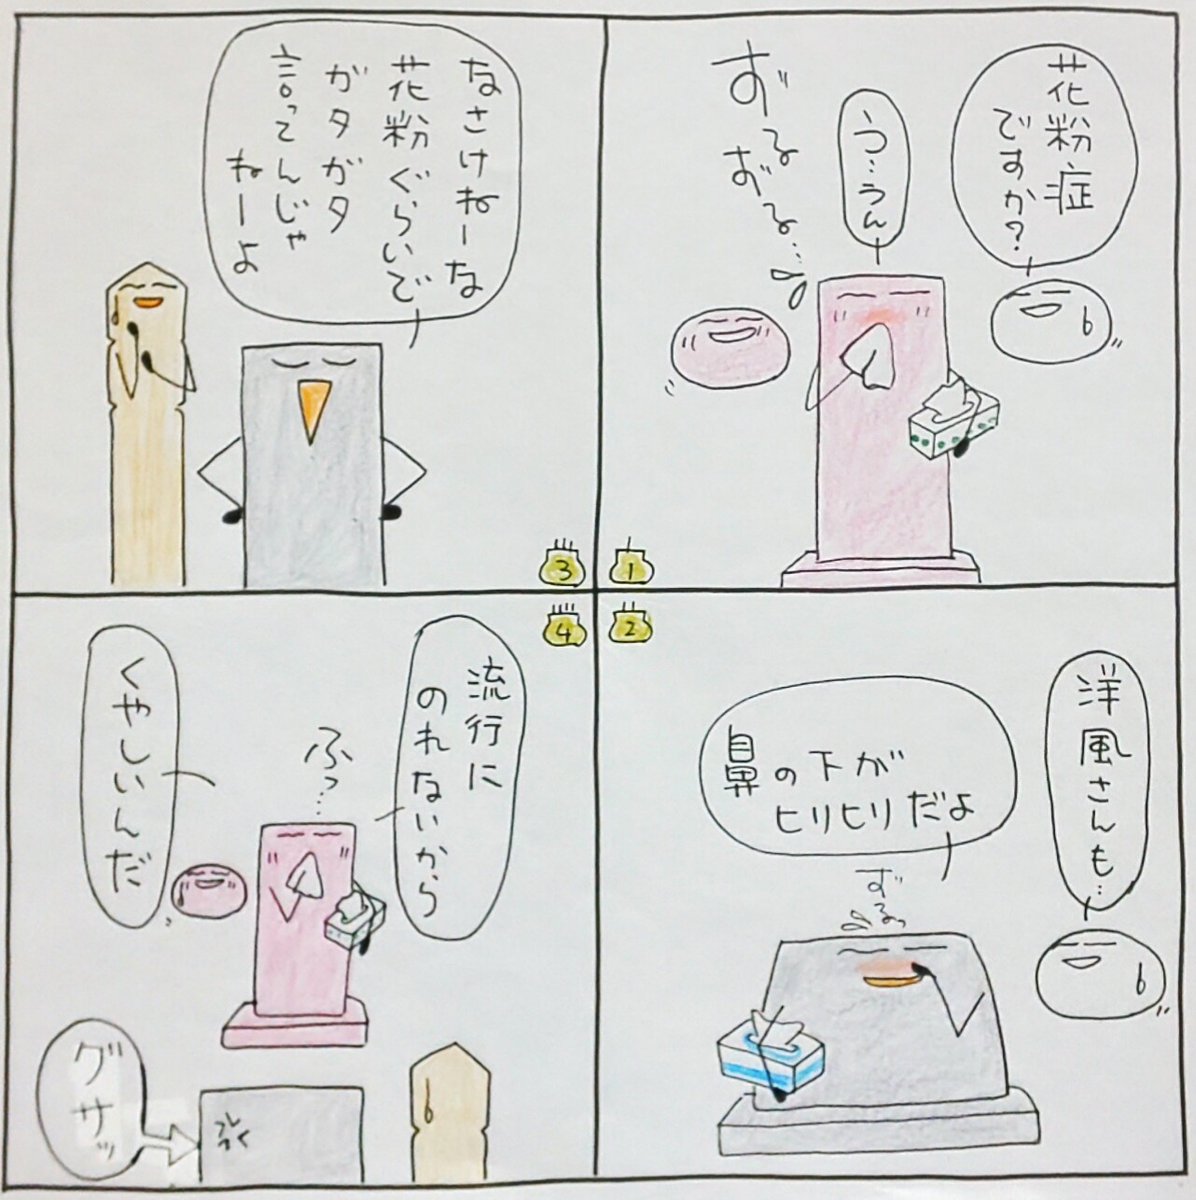 花粉症
ですか?
う…うん
ずる
ずる…
1
洋風さんも…
鼻の下が
ヒリヒリだよ
ずるっ
2
なさけねーな
花粉ぐらいで
ガタガタ
言ってんじゃ
ねーよ
3
流行に
のれないから
ふっ…
くやしいんだ
グサッ
4